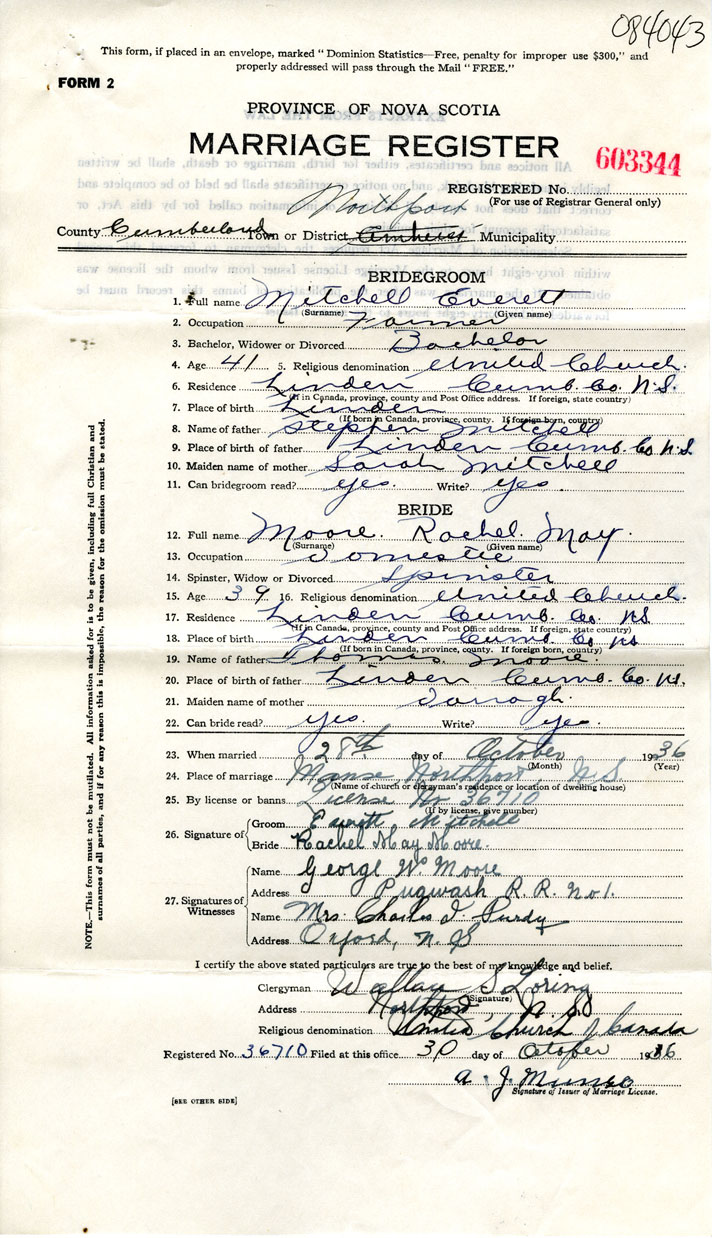 084043
This form, if placed in an envelope, marked "Dominion Statistics—Free, penalty for improper use $300," and
properly addressed will pass through the Mail "FREE."
FORM 2
PROVINCE OF NOVA SCOTIA
MARRIAGE REGISTER
603344
REGISTERED No.
(For use of Registrar General only)
Northport
County Cumberland Town or District Amherst Municipality
BRIDEGROOM
1. Full name Mitchell Everett
(Surname) (Given name)
2. Occupation Farmer
3. Bachelor, Widower or Divorced Bachelor
4. Age 41 5. Religious denomination United Church.
6. Residence Linden Cumb. Co. N.S.
(If in Canada, province, county and Post Office address. If foreign, state country)
7. Place of birth Linden
(If born in Canada, province, county. If foreign born, country)
8. Name of father Stephen Mitchell
9. Place of birth of father Linden Cumb. Co. N.S.
10. Maiden name of mother Sarah Mitchell
11. Can bridegroom read? yes. Write? yes.
BRIDE
12. Full name Moore. Rachel. May.
(Surname) (Given name)
13. Occupation Domestic
14. Spinster, Widow or Divorced Spinster
15. Age 39 16. Religious denomination United Church.
17. Residence Linden Cumb. Co. NS.
(If in Canada, province, county and Post Office address. If foreign, state country)
18. Place of birth Linden Cumb. Co NS
(If born in Canada, province, county. If foreign born, country)
19. Name of father Thomas Moore.
20. Place of birth of father Linden Cumb. Co. N.S.
21. Maiden name of mother
22. Can bride read? yes. Write? yes.
23. When married 28th day of October 1936
(Month) (Year)
24. Place of marriage Manse Northport, N.S
(Name of church or clergyman's residence or location of dwelling house)
25. By license or banns License No 36710
(If by license, give number)
26. Signature of Groom Everett Mitchell
Bride Rachel May Moore.
27. Signatures of Witnesses
Name George W. Moore
Address Pugwash R.R. No 1.
Name Mrs. Charles I. Purdy
Address Oxford, N.S
I certify the above stated particulars are true to the best of my knowledge and belief.
Clergyman Wallace S Loring
(Signature)
Address Northport, N.S
Religious denomination United Church of Canada
Registered No. 36710 Filed at this office 30 day of October 1936
A. J. Munro
Signature of Issuer of Marriage License.
[SEE OTHER SIDE]
NOTE.—This form must not be mutilated. All information asked for is to be given, including full Christian and
surnames of all parties, and if for any reason this is impossible, the reason for the omission must be stated.